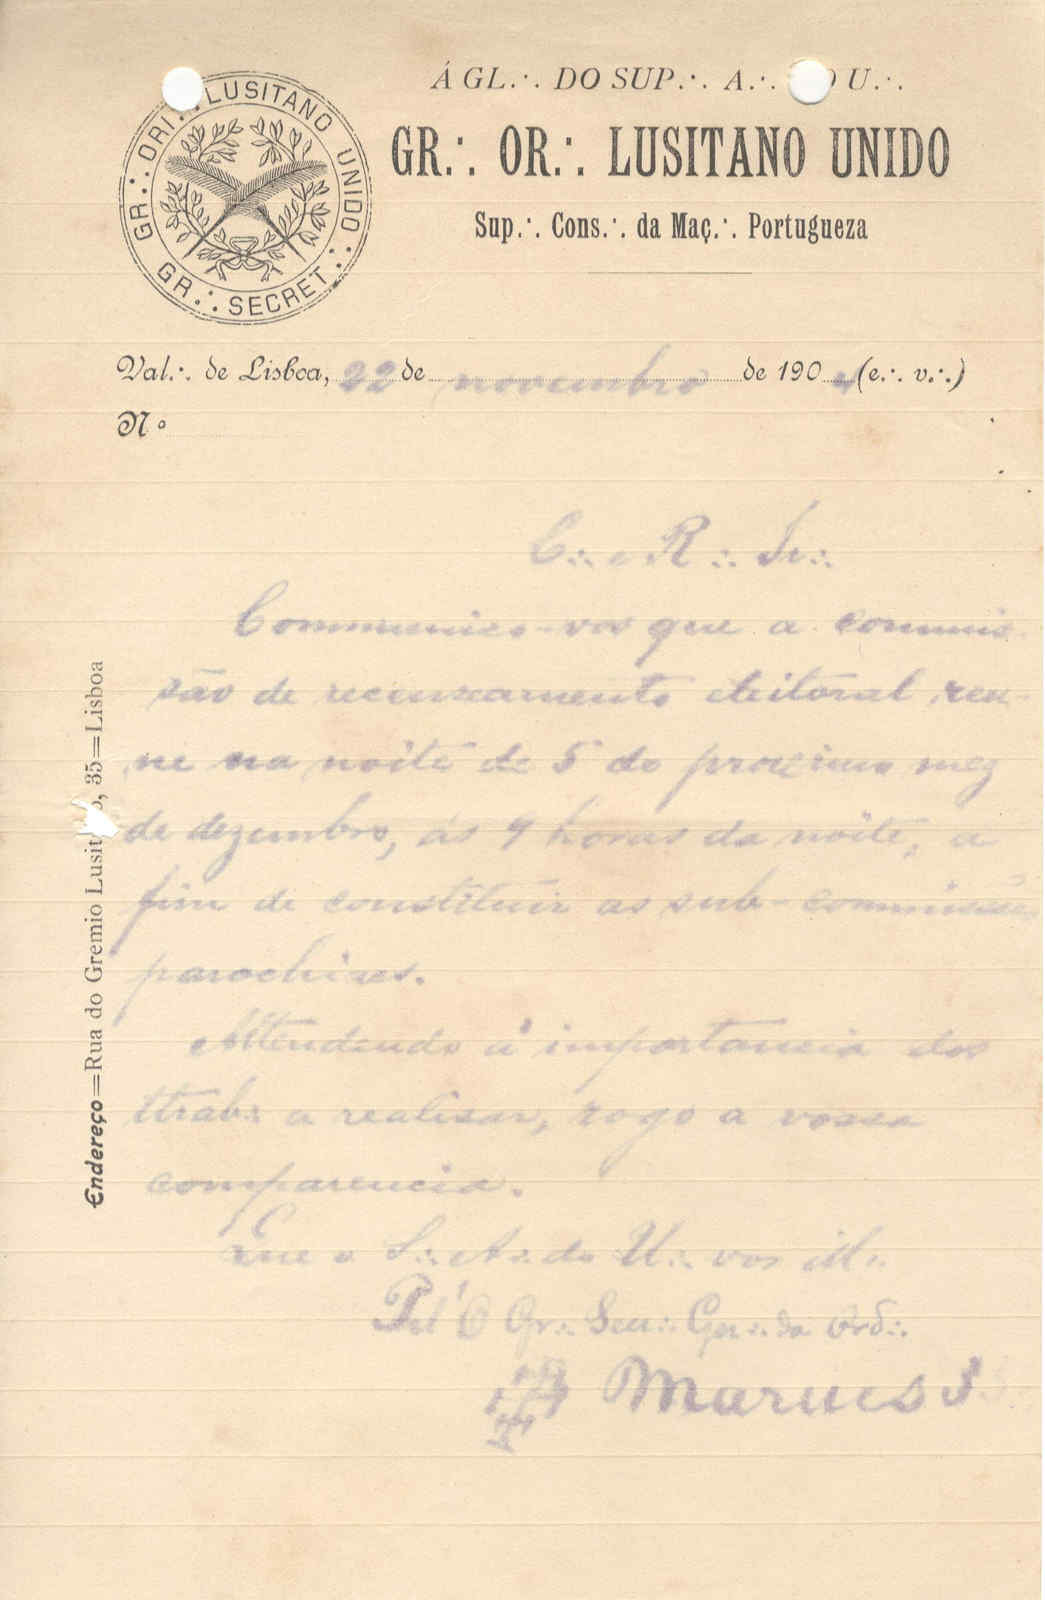 Á GL.·. DO SUP.·. A.·. DO U.·.
GR.·. OR.·. LUSITANO UNIDO
Sup.·. Cons.·. da Maç.·. Portugueza
GR.·. ORI.·. LUSITANO UNIDO.·.
GR.·. SECRET.·.
Val.·. de Lisboa, 22 de novembro de 1904 (e.·. v.·.)
Nº
C.·. e R.·. Ir.·.
Communico-vos que a commis-
são de recenseamento eleitoral reu-
ne na noite de 5 do proximo mez
de dezembro, ás 9 horas da noite, a
fim de constituir as sub-commissões
parochiaes.
Attendendo á importancia dos
ttrab.·. a realisar, rogo a vossa
comparencia.
Que o S.·. A.·. do U.·. vos ill.·.
Pel'O Gr.·. Secr.·. Ger.·. da Ord.·.
Endereço=Rua do Gremio Lusitano, 35=Lisboa